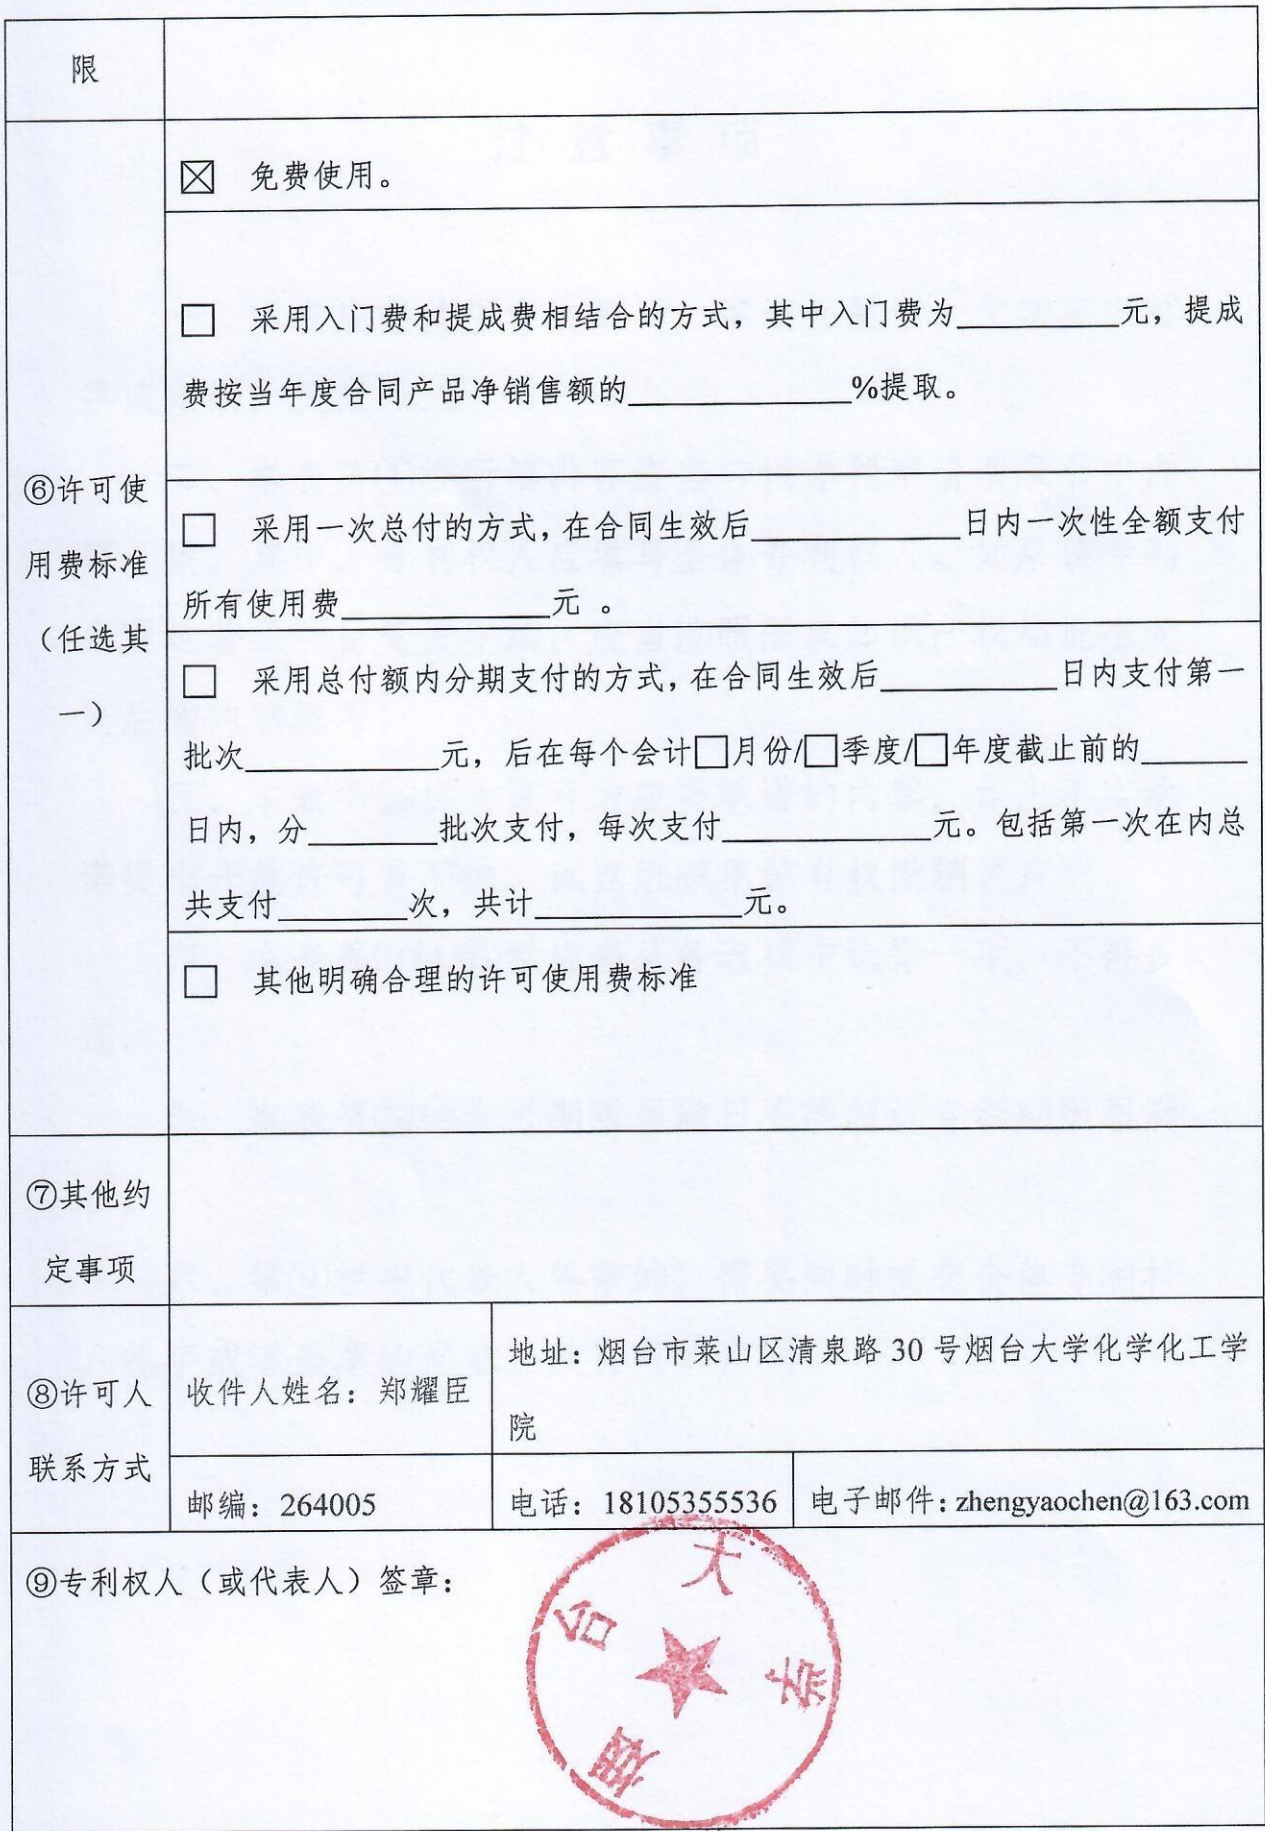 限
☒ 免费使用。
☐ 采用入门费和提成费相结合的方式，其中入门费为__________元，提成
费按当年度合同产品净销售额的______________%提取。
⑥许可使
用费标准
（任选其
一）
☐ 采用一次总付的方式，在合同生效后_____________日内一次性全额支付
所有使用费_____________元 。
☐ 采用总付额内分期支付的方式，在合同生效后___________日内支付第一
批次____________元，后在每个会计☐月份/☐季度/☐年度截止前的_______
日内，分________批次支付，每次支付_____________元。包括第一次在内总
共支付________次，共计_____________元。
☐ 其他明确合理的许可使用费标准
⑦其他约
定事项
⑧许可人
联系方式
收件人姓名：郑耀臣
地址：烟台市莱山区清泉路 30 号烟台大学化学化工学
院
邮编：264005
电话：18105355536
电子邮件：zhengyaochen@163.com
⑨专利权人（或代表人）签章：
烟台大学